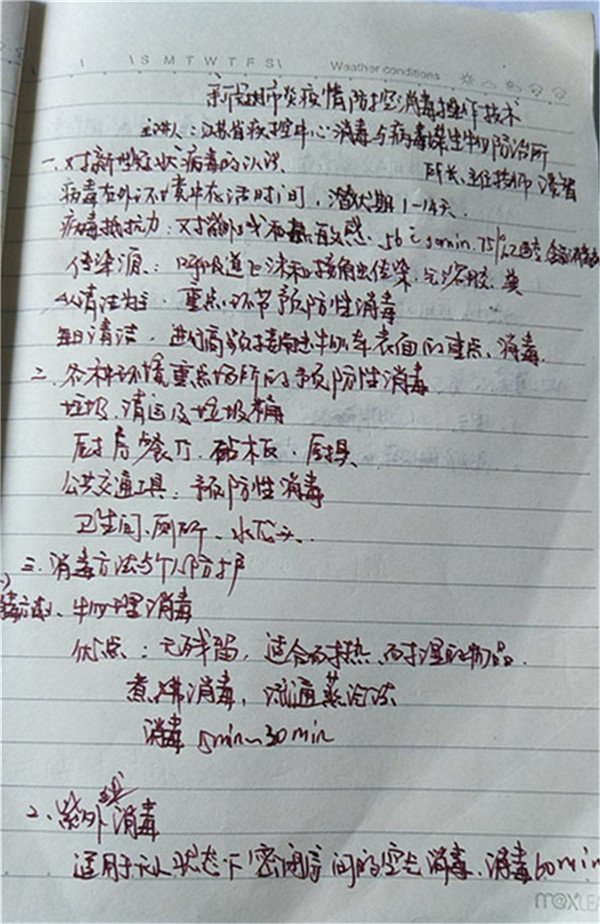 S M T W T F S Weather conditions
新冠肺炎疫情防控消毒操作技术
主讲人：江苏省疾控中心消毒与病毒媒生物防治所
所长、主任技师
一、对新型冠状病毒的认识
病毒在外环境中存活时间，潜伏期1-14天.
病毒抵抗力：对紫外线和热敏感、56℃30min.75%乙醇
传染源：呼吸道飞沫和接触传染.气溶胶、粪
以清洁为主、重点环节预防性消毒
每日清洁，进行高频接触物体表面的重点、消毒.
二、各种环境重点场所的预防性消毒
垃圾、清运及垃圾桶
厨房餐厅、砧板、厨具、
公共交通工具：预防性消毒
卫生间、厕所、水龙头..
三、消毒方法与个人防护
1、物理消毒
优点：无残留，适合耐热、耐湿的物品.
煮沸消毒，流通蒸汽
消毒 5min~30min
2、紫外线消毒
适用于无人状态下密闭房间的空气消毒、消毒60min
m@XLEA